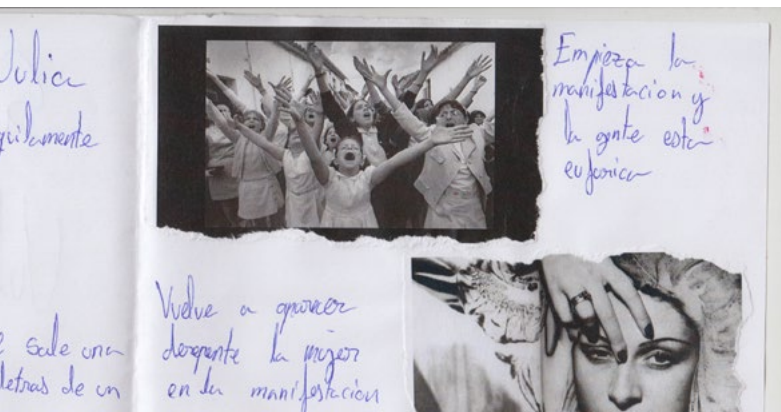 Julia
quilamente
e sale una
letras de un
Empieza la
manifestacion y
la gente esta
euforica
Vuelve a aparecer
derepente la mujer
en la manifestacion